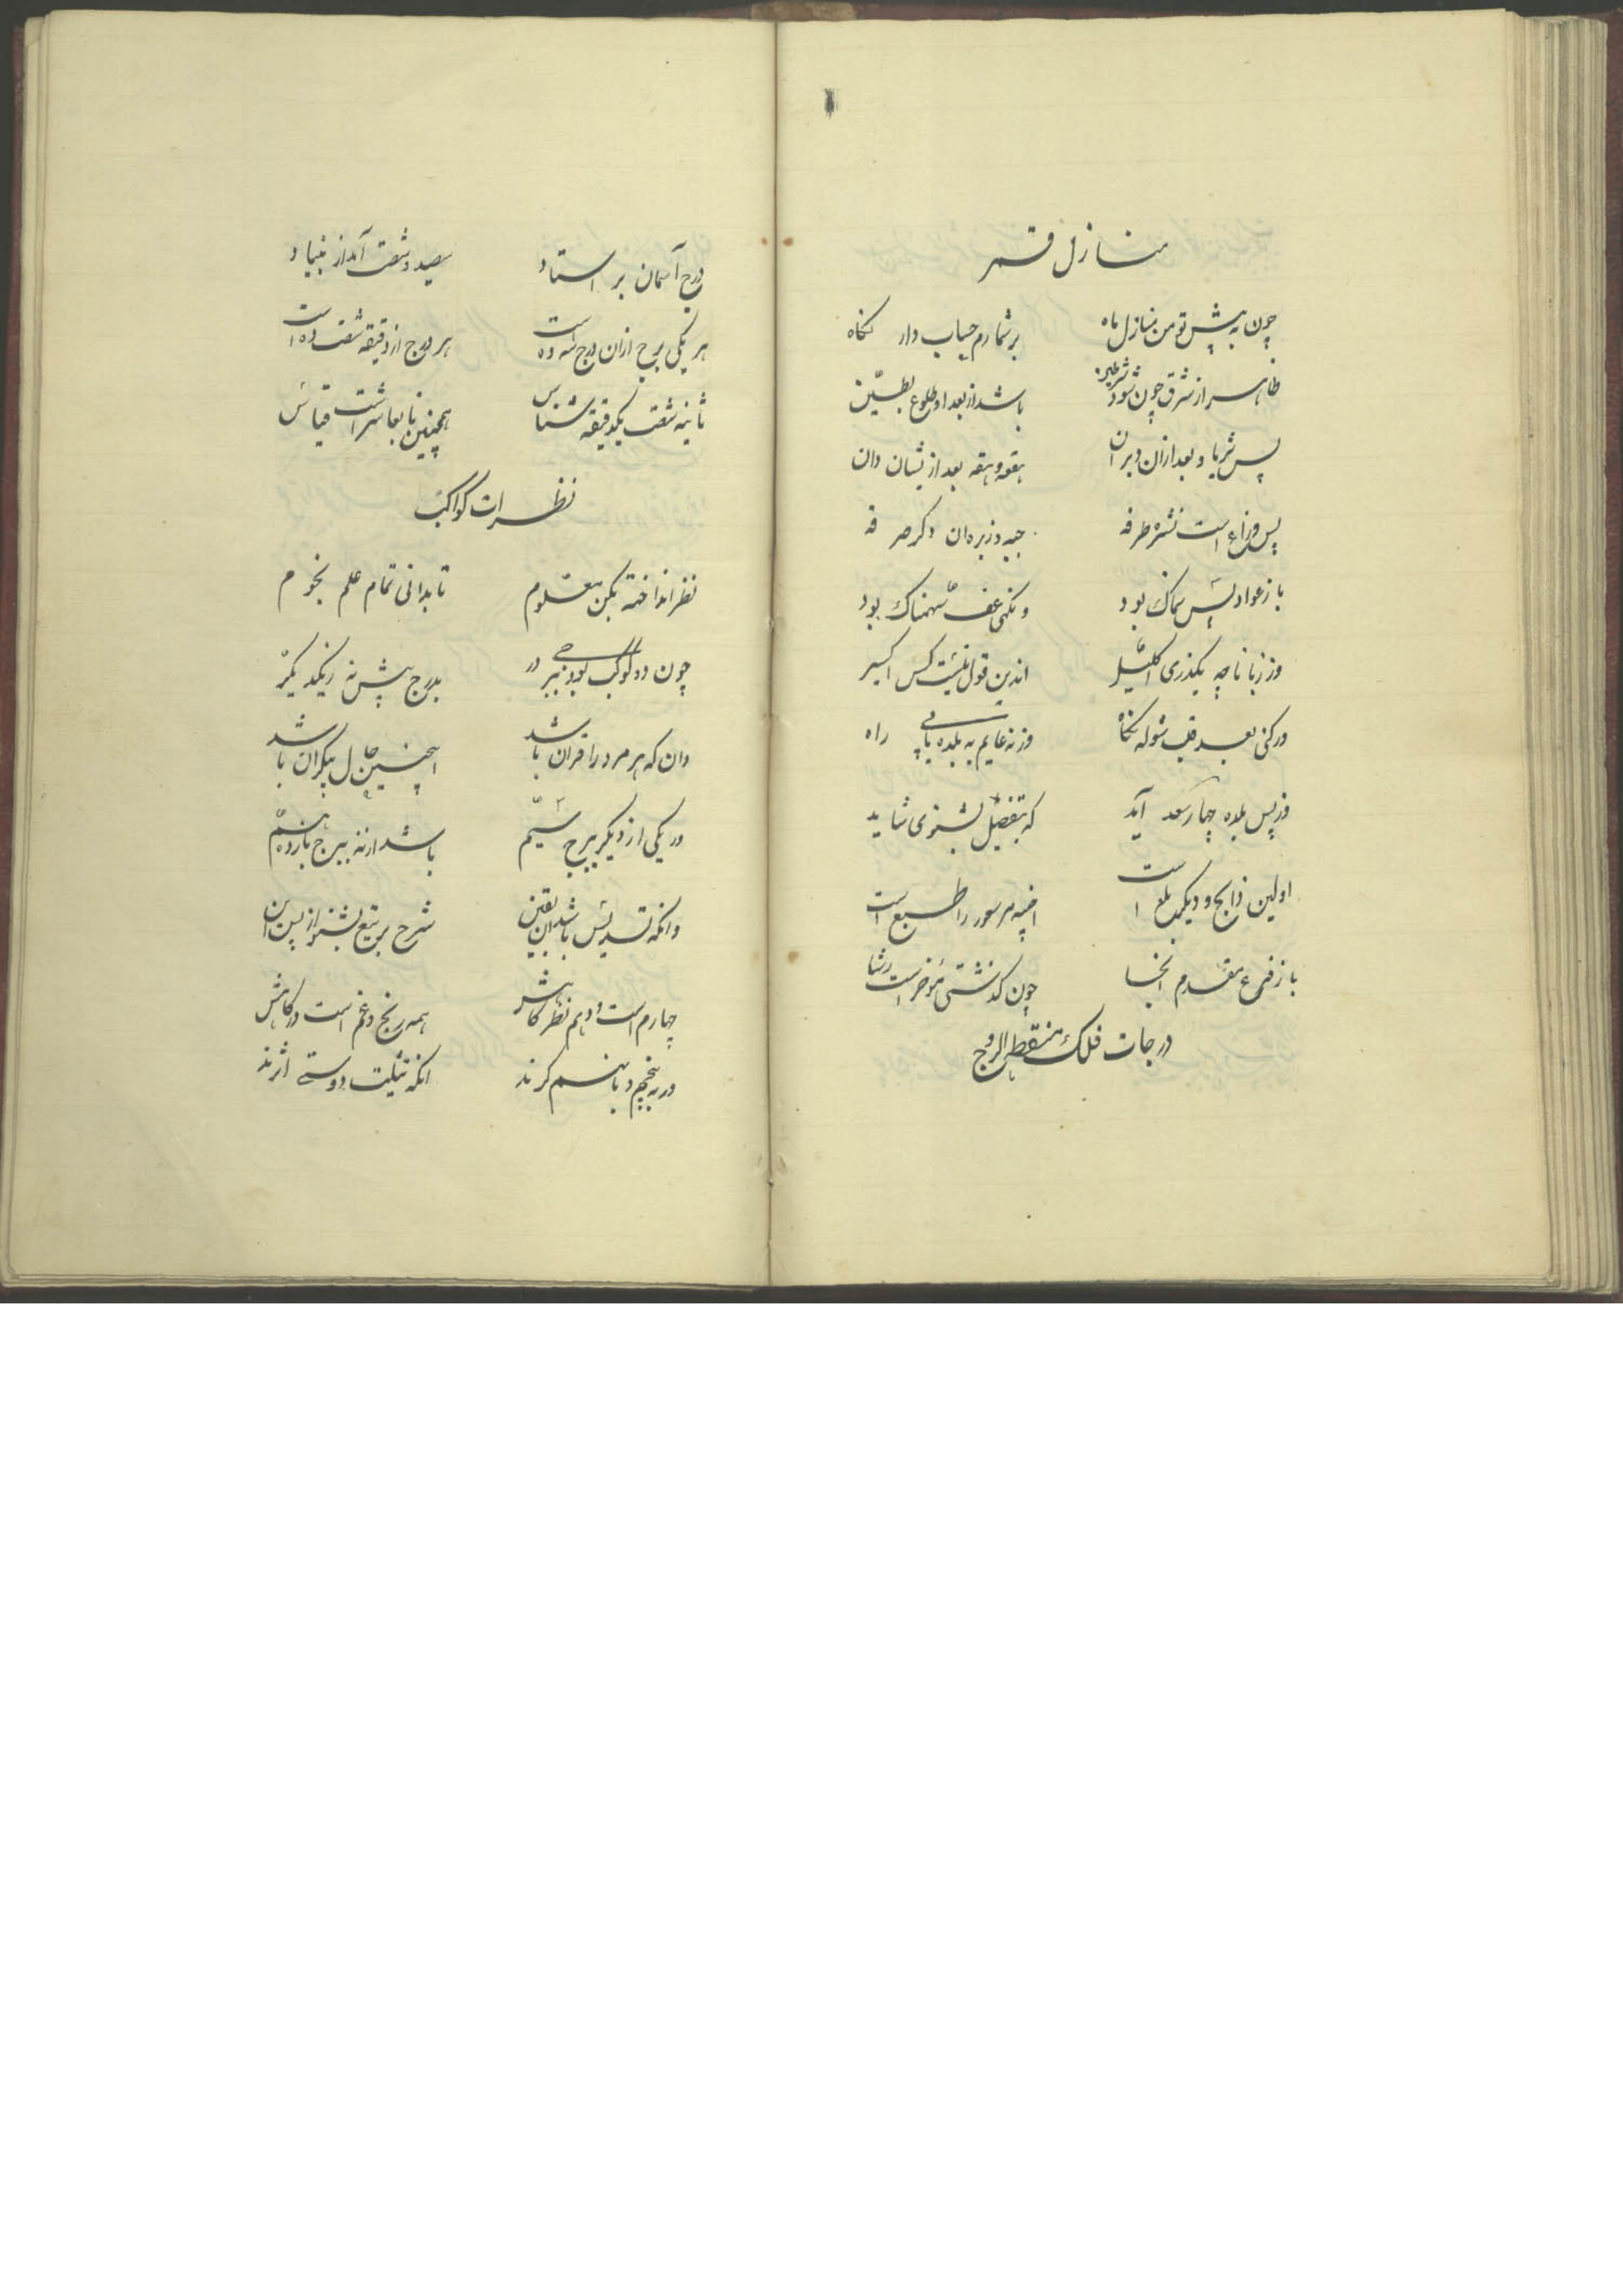 منازل قمر
چون به پیش تو من منازل ماه برشمارم حساب دار نگاه
ظاهر از شرق چون شود شرطین باشد از بعد او طلوع بطین
پس ثریا و بعد ازان دبران هقعه و هنعه بعد ازیشان دان
پس ذراع است نثره طرفه جبهه و زبره دان دگر صرفه
باز عوا و پس سماک بود ونگهی غفر سهمناک بود
وز زبانا چه بگذری اکلیل اندرین قول نیست کس
ور کنی بعد قلب شوله نگاه وز نعایم به بلده یابی راه
وز پس بلده چهار سعد آید که بتفصیل بشنوی شاید
اولین ذابح و دیگر بلع است اخبیه مر سعود را طبع است
باز فرع مقدم آنجا چون گذشتی مؤخر است رشا
درجات فلک منقطه البروج
درج آسمان بر استاد سیصد و شصت آمد از بنیاد
هر یکی برج ازان درج سه ده است هر درج از دقیقه شصت ده است
ثانیه شصت یکدقیقه شناس همچنین تا بعاشر است قیاس
نظرات کواکب
نظر انداخته بکن معلوم تا بدانی تمام علم نجوم
چون دو کوکب بود ببرجی در بدرج پیش نه زیکدیگر
دان که هر مرد را قران باشد اینچنین حال بیکران باشد
ور یکی از دیگر ببرج سیم باشد از نه ببرج یازدهم
وانکه تسدیس باشد آن بیقین شرح تربیع بشنو از پس این
چهارم است و دهم نظر گاهش همه رنج و غم است در کاهش
ور به پنجم و یا نهم گرند انکه تثلیت دوستی اثرند